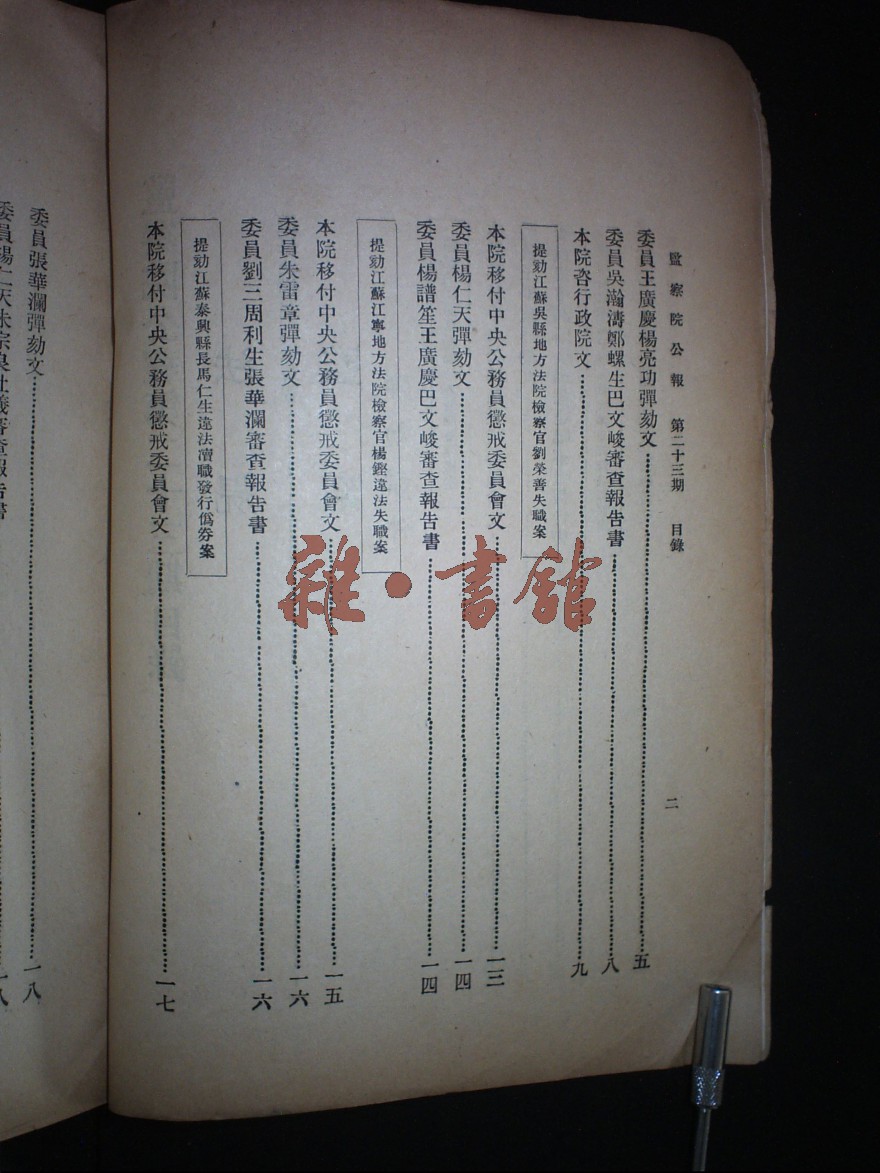 監察院公報　第二十三期　目錄
二
委員王廣慶楊亮功彈劾文……五
委員吳瀚濤鄭螺生巴文峻審查報告書……八
本院咨行政院文……九
提劾江蘇吳縣地方法院檢察官劉榮善失職案
本院移付中央公務員懲戒委員會文……一三
委員楊仁天彈劾文……一四
委員楊譜笙王廣慶巴文峻審查報告書……一四
提劾江蘇江寧地方法院檢察官楊鏗違法失職案
本院移付中央公務員懲戒委員會文……一五
委員朱雷章彈劾文……一六
委員劉三周利生張華瀾審查報告書……一六
提劾江蘇泰興縣長馬仁生違法瀆職發行僞券案
本院移付中央公務員懲戒委員會文……一七
委員張華瀾彈劾文……一八
委員楊仁天朱宗良杜羲審查報告書……一八
雜·書舘